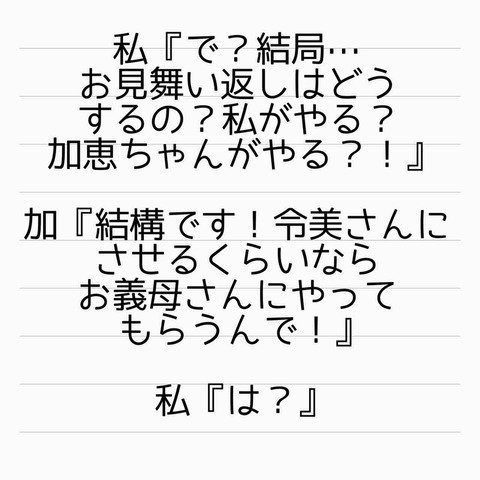 私『で？結局…
お見舞い返しはどう
するの？私がやる？
加恵ちゃんがやる？！』
加『結構です！令美さんに
させるくらいなら
お義母さんにやって
もらうんで！』
私『は？』